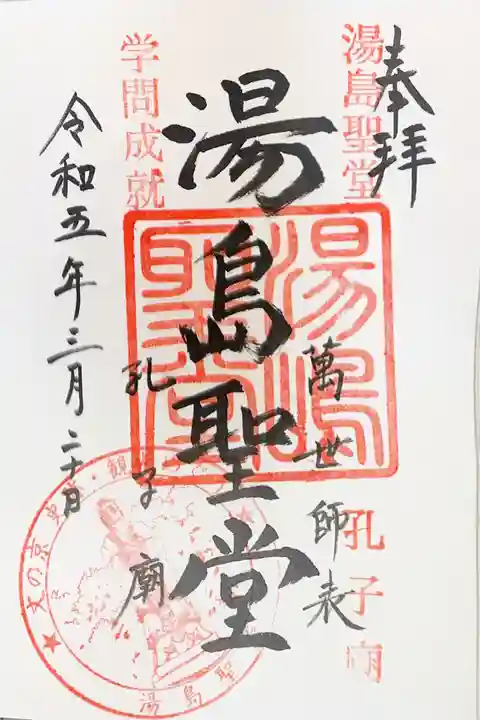 奉拝
湯島聖堂
孔子廟
萬世師表
湯嶋聖堂
湯島聖堂
孔子廟
学問成就
令和五年三月二十日
文の京
湯島聖